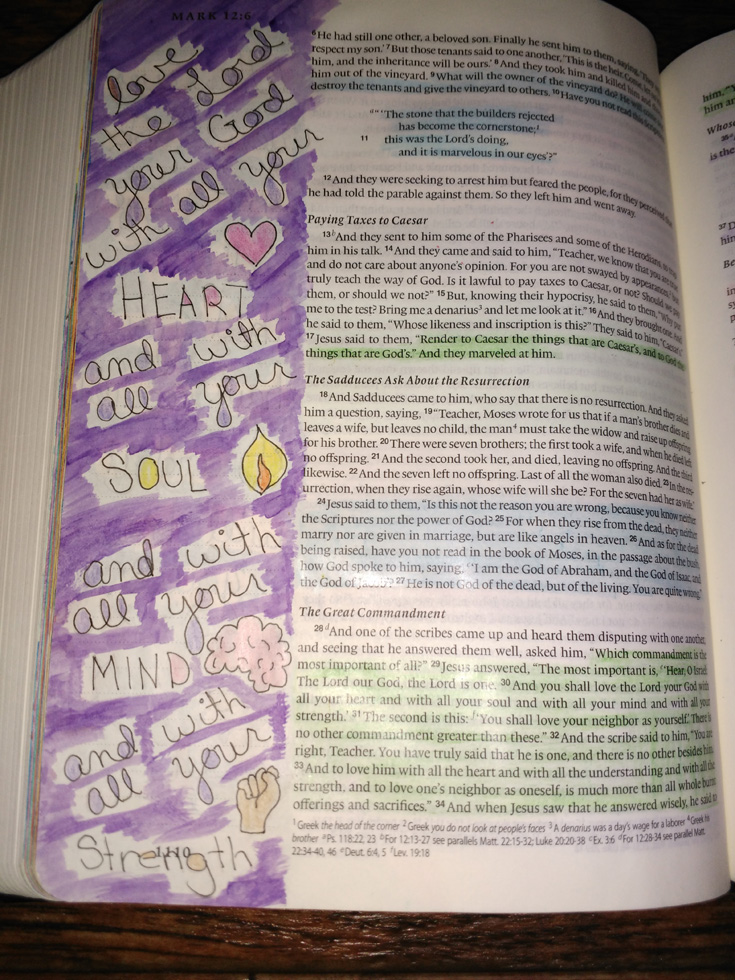 MARK 12:6
love
the Lord
your God
with all your
HEART
and with
all your
SOUL
and with
all your
MIND
and with
all your
Strength
6He had still one other, a beloved son. Finally he sent him to them, saying, 'They will
respect my son.' 7But those tenants said to one another, 'This is the heir. Come,
him, and the inheritance will be ours.' 8And they took him and killed him and
him out of the vineyard. 9What will the owner of the vineyard do? He will
destroy the tenants and give the vineyard to others. 10Have you not read this
"'The stone that the builders rejected
has become the cornerstone;
11 this was the Lord's doing,
and it is marvelous in our eyes'?"
12And they were seeking to arrest him but feared the people, for they perceived that
he had told the parable against them. So they left him and went away.
Paying Taxes to Caesar
13And they sent to him some of the Pharisees and some of the Herodians, to
him in his talk. 14And they came and said to him, "Teacher, we know that you are
and do not care about anyone's opinion. For you are not swayed by appearances, but
truly teach the way of God. Is it lawful to pay taxes to Caesar, or not? Should we pay
them, or should we not?" 15But, knowing their hypocrisy, he said to them, "Why put
me to the test? Bring me a denarius3 and let me look at it." 16And they brought one. And
he said to them, "Whose likeness and inscription is this?" They said to him, "Caesar's."
17Jesus said to them, "Render to Caesar the things that are Caesar's, and to God the
things that are God's." And they marveled at him.
The Sadducees Ask About the Resurrection
18And Sadducees came to him, who say that there is no resurrection. And they asked
him a question, saying, 19"Teacher, Moses wrote for us that if a man's brother dies and
leaves a wife, but leaves no child, the man4 must take the widow and raise up offspring
for his brother. 20There were seven brothers; the first took a wife, and when he died left
no offspring. 21And the second took her, and died, leaving no offspring. And the third
likewise. 22And the seven left no offspring. Last of all the woman also died. 23In the res-
urrection, when they rise again, whose wife will she be? For the seven had her as wife."
24Jesus said to them, "Is this not the reason you are wrong, because you know neither
the Scriptures nor the power of God? 25For when they rise from the dead, they neither
marry nor are given in marriage, but are like angels in heaven. 26And as for the dead
being raised, have you not read in the book of Moses, in the passage about the bush,
how God spoke to him, saying, 'I am the God of Abraham, and the God of Isaac, and
the God of Jacob'? 27He is not God of the dead, but of the living. You are quite wrong."
The Great Commandment
28dAnd one of the scribes came up and heard them disputing with one another,
and seeing that he answered them well, asked him, "Which commandment is the
most important of all?" 29Jesus answered, "The most important is, 'Hear, O Israel:
The Lord our God, the Lord is one. 30And you shall love the Lord your God with
all your heart and with all your soul and with all your mind and with all your
strength.' 31The second is this: 'You shall love your neighbor as yourself.' There is
no other commandment greater than these." 32And the scribe said to him, "You are
right, Teacher. You have truly said that he is one, and there is no other besides him.
33And to love him with all the heart and with all the understanding and with all the
strength, and to love one's neighbor as oneself, is much more than all whole burnt
offerings and sacrifices." 34And when Jesus saw that he answered wisely, he said to
1Greek the head of the corner 2Greek you do not look at people's faces 3A denarius was a day's wage for a laborer 4Greek his
brother aPs. 118:22, 23 bFor 12:13-27 see parallels Matt. 22:15-32; Luke 20:20-38 cEx. 3:6 dFor 12:28-34 see parallel Matt.
22:34-40, 46 eDeut. 6:4, 5 fLev. 19:18